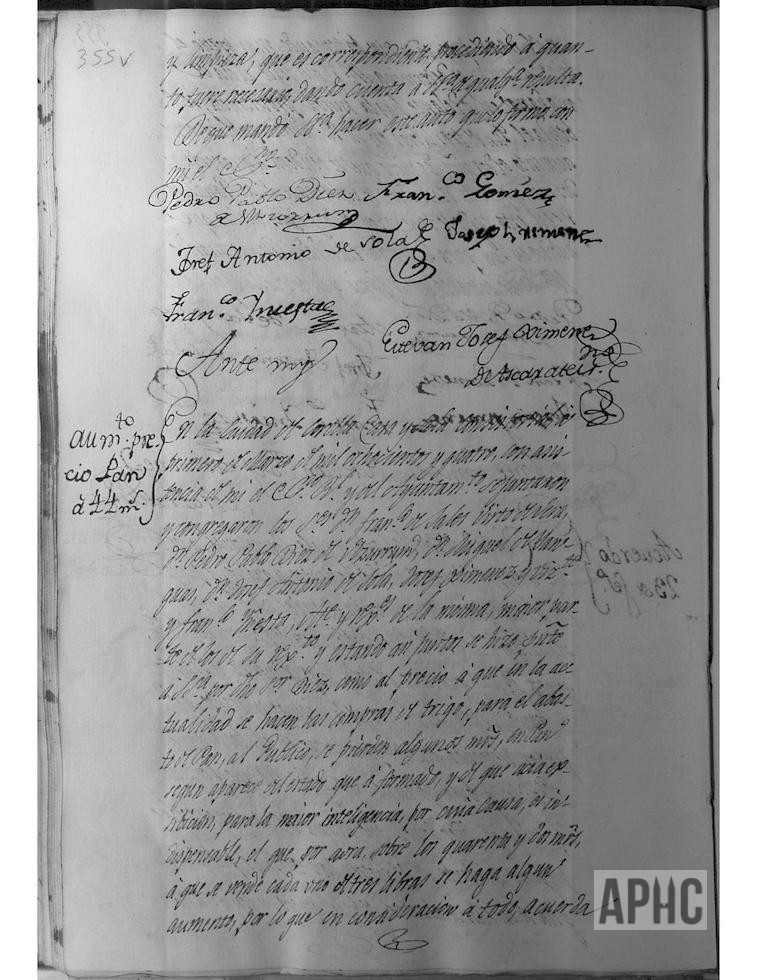 355v
y limpieza, que es correspondiente, procediendo á quan-
to fuere necesario, dando cuenta á Sª.
De que mandó Sª. hacer este auto que lo firmó, con
mi el SSº.
Pedro Pablo Diez Fran.co Gomez
Jref Antonio de Sola Joseph ximenez
Fran.co Yniesta
Estevan Josef Ximenez
Ante my
De Ascarate sº.
aum.to pre-
cio Pan
à 44 ms.
En la Ciudad de Corella Casa y Sala
primero de Marzo de mil ochocientos y quatro, con asis-
tencia de mi el SSº. Rl. y del Ayuntam.to se juntaron
y congregaron los S.res Dn. Fran.co de Sales Virto de Vera,
Dn. Pedro Pablo Diez de Ulzurrun, Dn. Miguel de
guas, Dn. Josef Antonio de Sola, Josef Ximenez
y Fran.co Yniesta, y de la misma, maior par-
te de los de su y estando asi juntos se hizo pnte.
á Sª. por dho Sor. Diez, como al precio á que en la ac-
tualidad se hacen las compras de trigo, para el abas-
to de Pan, al Publico, se pierden algunos mrs, en Pan
segun aparece del estado que á formado, y de que acia ex-
sibicion, para la maior inteligencia, por cuia causa, es in-
dispensable, el que por aora, sobre los quarenta y dos mrs,
á que se vende cada uno de tres libras se haga algun
aumento, por lo que en consideracion á todo, acuerda
Acuerdo
APHC